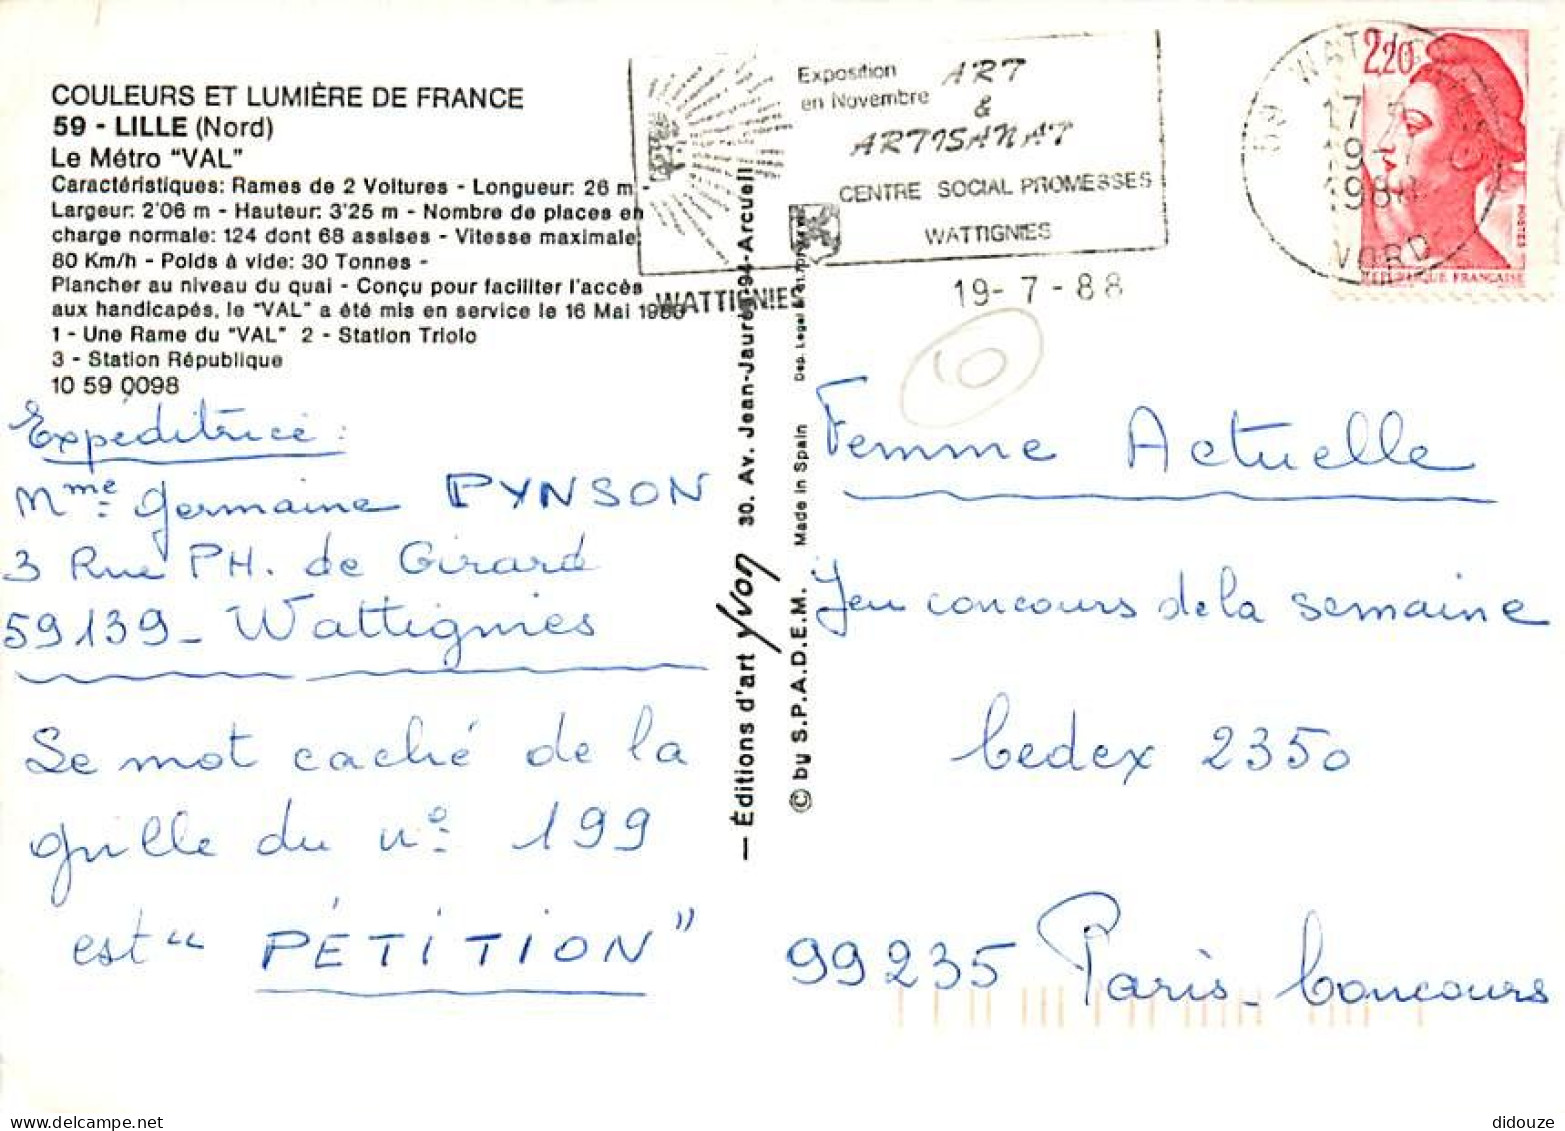 COULEURS ET LUMIÈRE DE FRANCE
59 - LILLE (Nord)
Le Métro "VAL"
Caractéristiques: Rames de 2 Voitures - Longueur: 26 m -
Largeur: 2'06 m - Hauteur: 3'25 m - Nombre de places en
charge normale: 124 dont 68 assises - Vitesse maximale:
80 Km/h - Poids à vide: 30 Tonnes -
Plancher au niveau du quai - Conçu pour faciliter l'accès
aux handicapés, le "VAL" a été mis en service le 16 Mai
1 - Une Rame du "VAL" 2 - Station Triolo
3 - Station République
10 59 0098
Expéditrice:
Mme Germaine PYNSON
3 Rue PH. de Girard
59139 - Wattignies
Le mot caché de la
grille du n° 199
est " PÉTITION "
— Éditions d'art Yvon 30. Av. Jean-Jaurès 94-Arcueil
© by S.P.A.D.E.M. Made in Spain Dep. Legal
Exposition
en Novembre
ART
&
ARTISANAT
CENTRE SOCIAL PROMESSES
WATTIGNIES
WATTIGNIES
19-7-88
59 WATTIGNIES
17
19-7
1988
NORD
2,20
POSTES
REPUBLIQUE FRANÇAISE
10
Femme Actuelle
Jeu concours de la semaine
Cedex 2350
99235 Paris - Concours
didouze